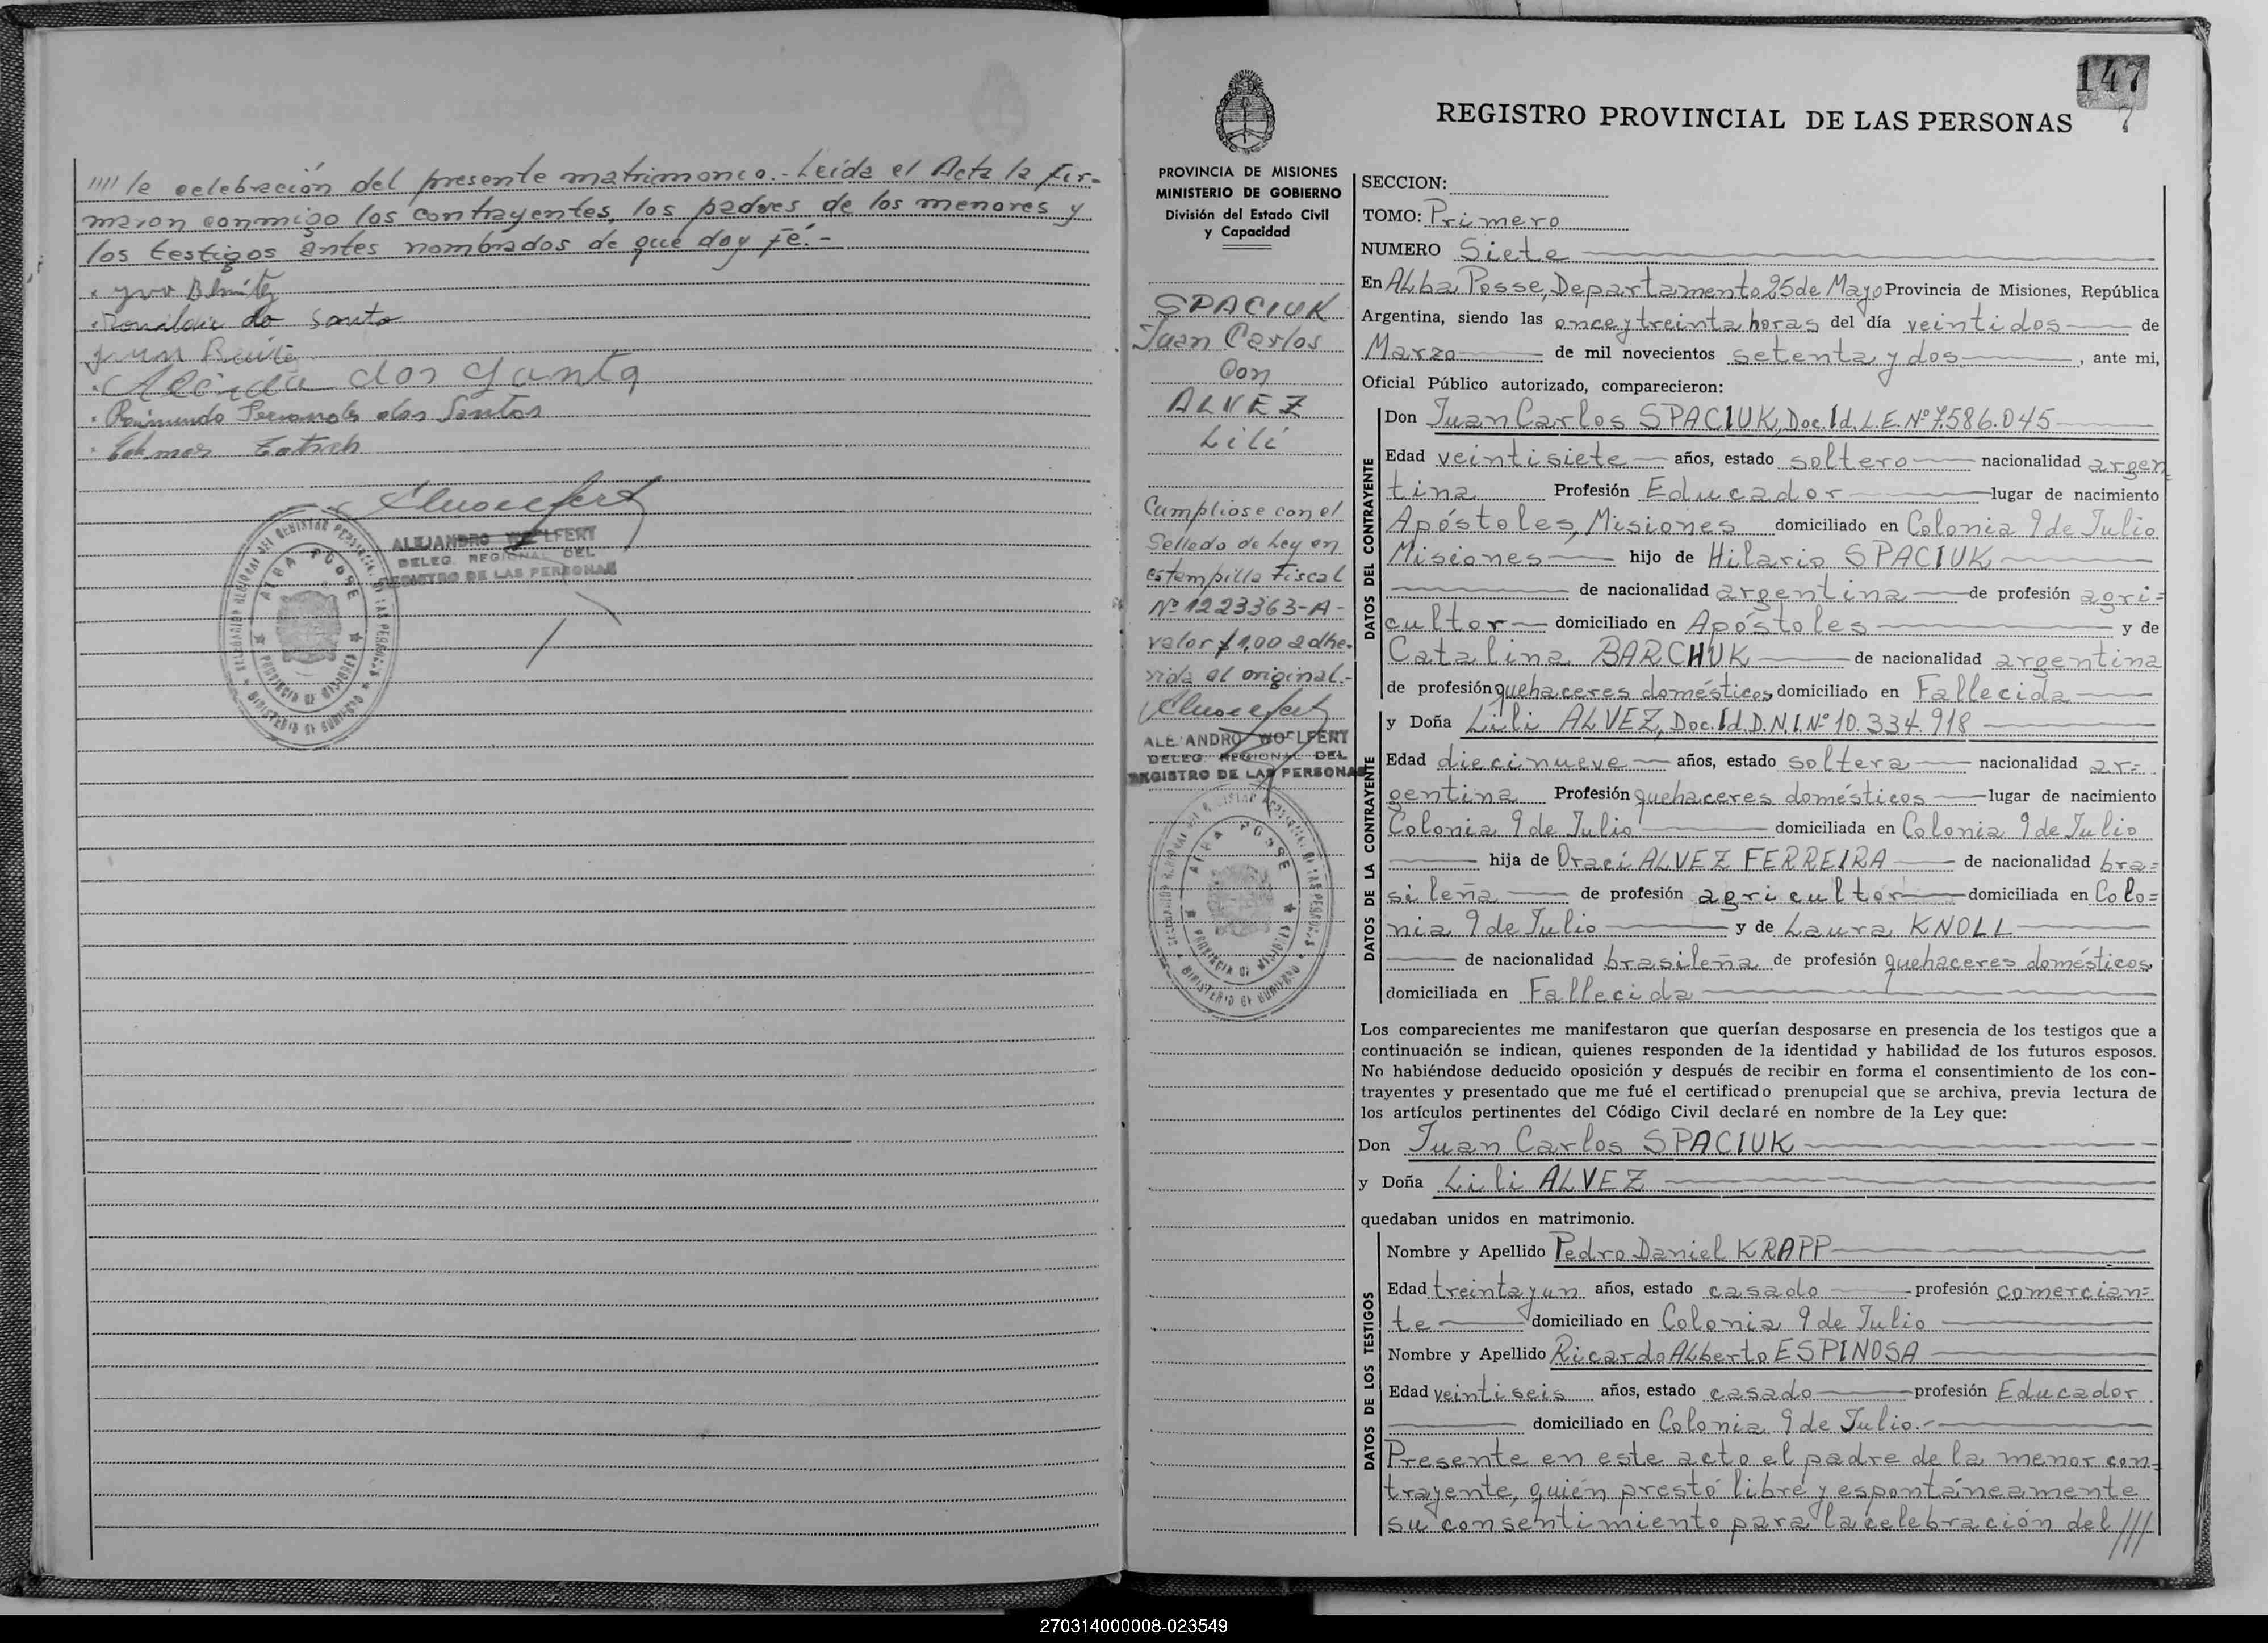 //// la celebración del presente matrimonio.- Leída el Acta la fir-
maron conmigo los contrayentes, los padres de los menores y
los testigos antes nombrados de que doy fé.-
dos Santos
ALEJANDRO WOELFERT
DELEG. REGIONAL DEL
REGISTRO DE LAS PERSONAS
ALBA POSSE
PROVINCIA DE MISIONES
MINISTERIO DE GOBIERNO
147
7
REGISTRO PROVINCIAL DE LAS PERSONAS
PROVINCIA DE MISIONES
MINISTERIO DE GOBIERNO
División del Estado Civil
y Capacidad
SPACIUK
Juan Carlos
Con
ALVEZ
Lili
Cumpliose con el
Sellado de Ley en
estampilla Fiscal
Nº 1223363-A-
valor $ 1,00 adhe-
rida al original.-
ALEJANDRO WOELFERT
DELEG. REGIONAL DEL
REGISTRO DE LAS PERSONAS
ALBA POSSE
PROVINCIA DE MISIONES
MINISTERIO DE GOBIERNO
SECCION:
TOMO: Primero
NUMERO Siete
En ALba Posse, Departamento 25 de Mayo Provincia de Misiones, República
Argentina, siendo las once y treinta horas del día veintidos de
Marzo de mil novecientos setenta y dos, ante mi,
Oficial Público autorizado, comparecieron:
DATOS DEL CONTRAYENTE
Don Juan Carlos SPACIUK, Doc. Id. L.E. Nº 7.586.045
Edad veintisiete años, estado soltero nacionalidad argen=
tina Profesión Educador lugar de nacimiento
Apóstoles, Misiones domiciliado en Colonia 9 de Julio
Misiones hijo de Hilario SPACIUK
de nacionalidad argentina de profesión agri=
cultor domiciliado en Apóstoles y de
Catalina BARCHUK de nacionalidad argentina
de profesión quehaceres domésticos domiciliado en Fallecida
DATOS DE LA CONTRAYENTE
y Doña Lili ALVEZ, Doc. Id. D.N.I. Nº 10.334.918
Edad diecinueve años, estado soltera nacionalidad ar=
gentina Profesión quehaceres domésticos lugar de nacimiento
Colonia 9 de Julio domiciliada en Colonia 9 de Julio
hija de Oraci ALVEZ FERREIRA de nacionalidad bra=
sileña de profesión agricultor domiciliada en Colo=
nia 9 de Julio y de Laura KNOLL
de nacionalidad brasileña de profesión quehaceres domésticos
domiciliada en Fallecida
Los comparecientes me manifestaron que querían desposarse en presencia de los testigos que a
continuación se indican, quienes responden de la identidad y habilidad de los futuros esposos.
No habiéndose deducido oposición y después de recibir en forma el consentimiento de los con-
trayentes y presentado que me fué el certificado prenupcial que se archiva, previa lectura de
los artículos pertinentes del Código Civil declaré en nombre de la Ley que:
Don Juan Carlos SPACIUK
y Doña Lili ALVEZ
quedaban unidos en matrimonio.
DATOS DE LOS TESTIGOS
Nombre y Apellido Pedro Daniel KRAPP
Edad treinta y un años, estado casado profesión comercian=
te domiciliado en Colonia 9 de Julio
Nombre y Apellido Ricardo ALberto ESPINOSA
Edad veintiseis años, estado casado profesión Educador
domiciliado en Colonia 9 de Julio.-
Presente en este acto el padre de la menor con=
trayente, quién prestó libre y espontáneamente
su consentimiento para la celebración del ///
270314000008-023549